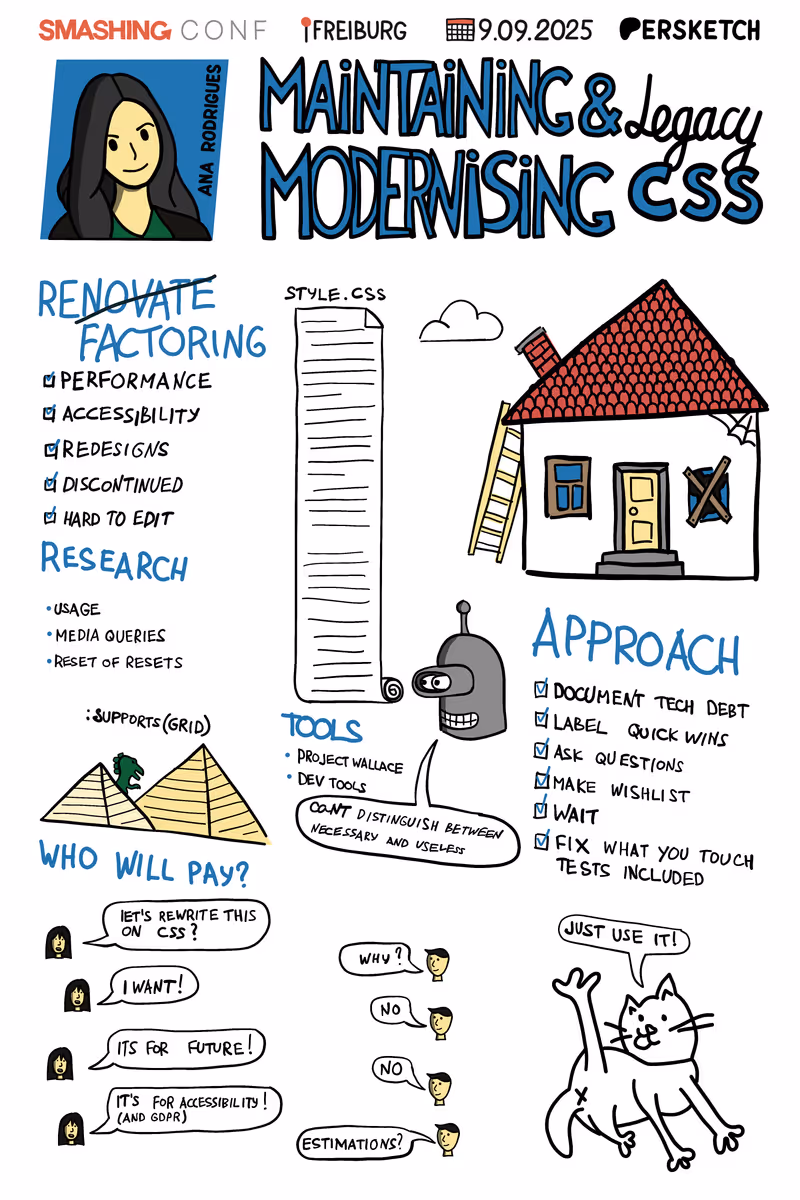 SMASHING CONF
FREIBURG
9.09.2025
PERSKETCH
ANA RODRIGUES
MAiNTAiNiNG & Legacy
MODERNiSiNG CSS
RENOVATE
FACTORING
PERFORMANCE
ACCESSIBILITY
REDESIGNS
DISCONTINUED
HARD TO EDIT
RESEARCH
•USAGE
•MEDIA QUERIES
•RESET OF RESETS
:SUPPORTS(GRID)
STYLE.CSS
TOOLS
• PROJECT WALLACE
• DEV TOOLS
CAN'T DISTINGUISH BETWEEN
NECESSARY AND USELESS
APPROACH
DOCUMENT TECH DEBT
LABEL QUICK WINS
ASK QUESTIONS
MAKE WISHLIST
WAIT
FIX WHAT YOU TOUCH
TESTS INCLUDED
WHO WILL PAY?
LET'S REWRITE THIS
ON CSS?
WHY?
I WANT!
NO
ITS FOR FUTURE!
NO
IT'S FOR ACCESSIBILITY!
(AND GDPR)
ESTIMATIONS?
JUST USE IT!